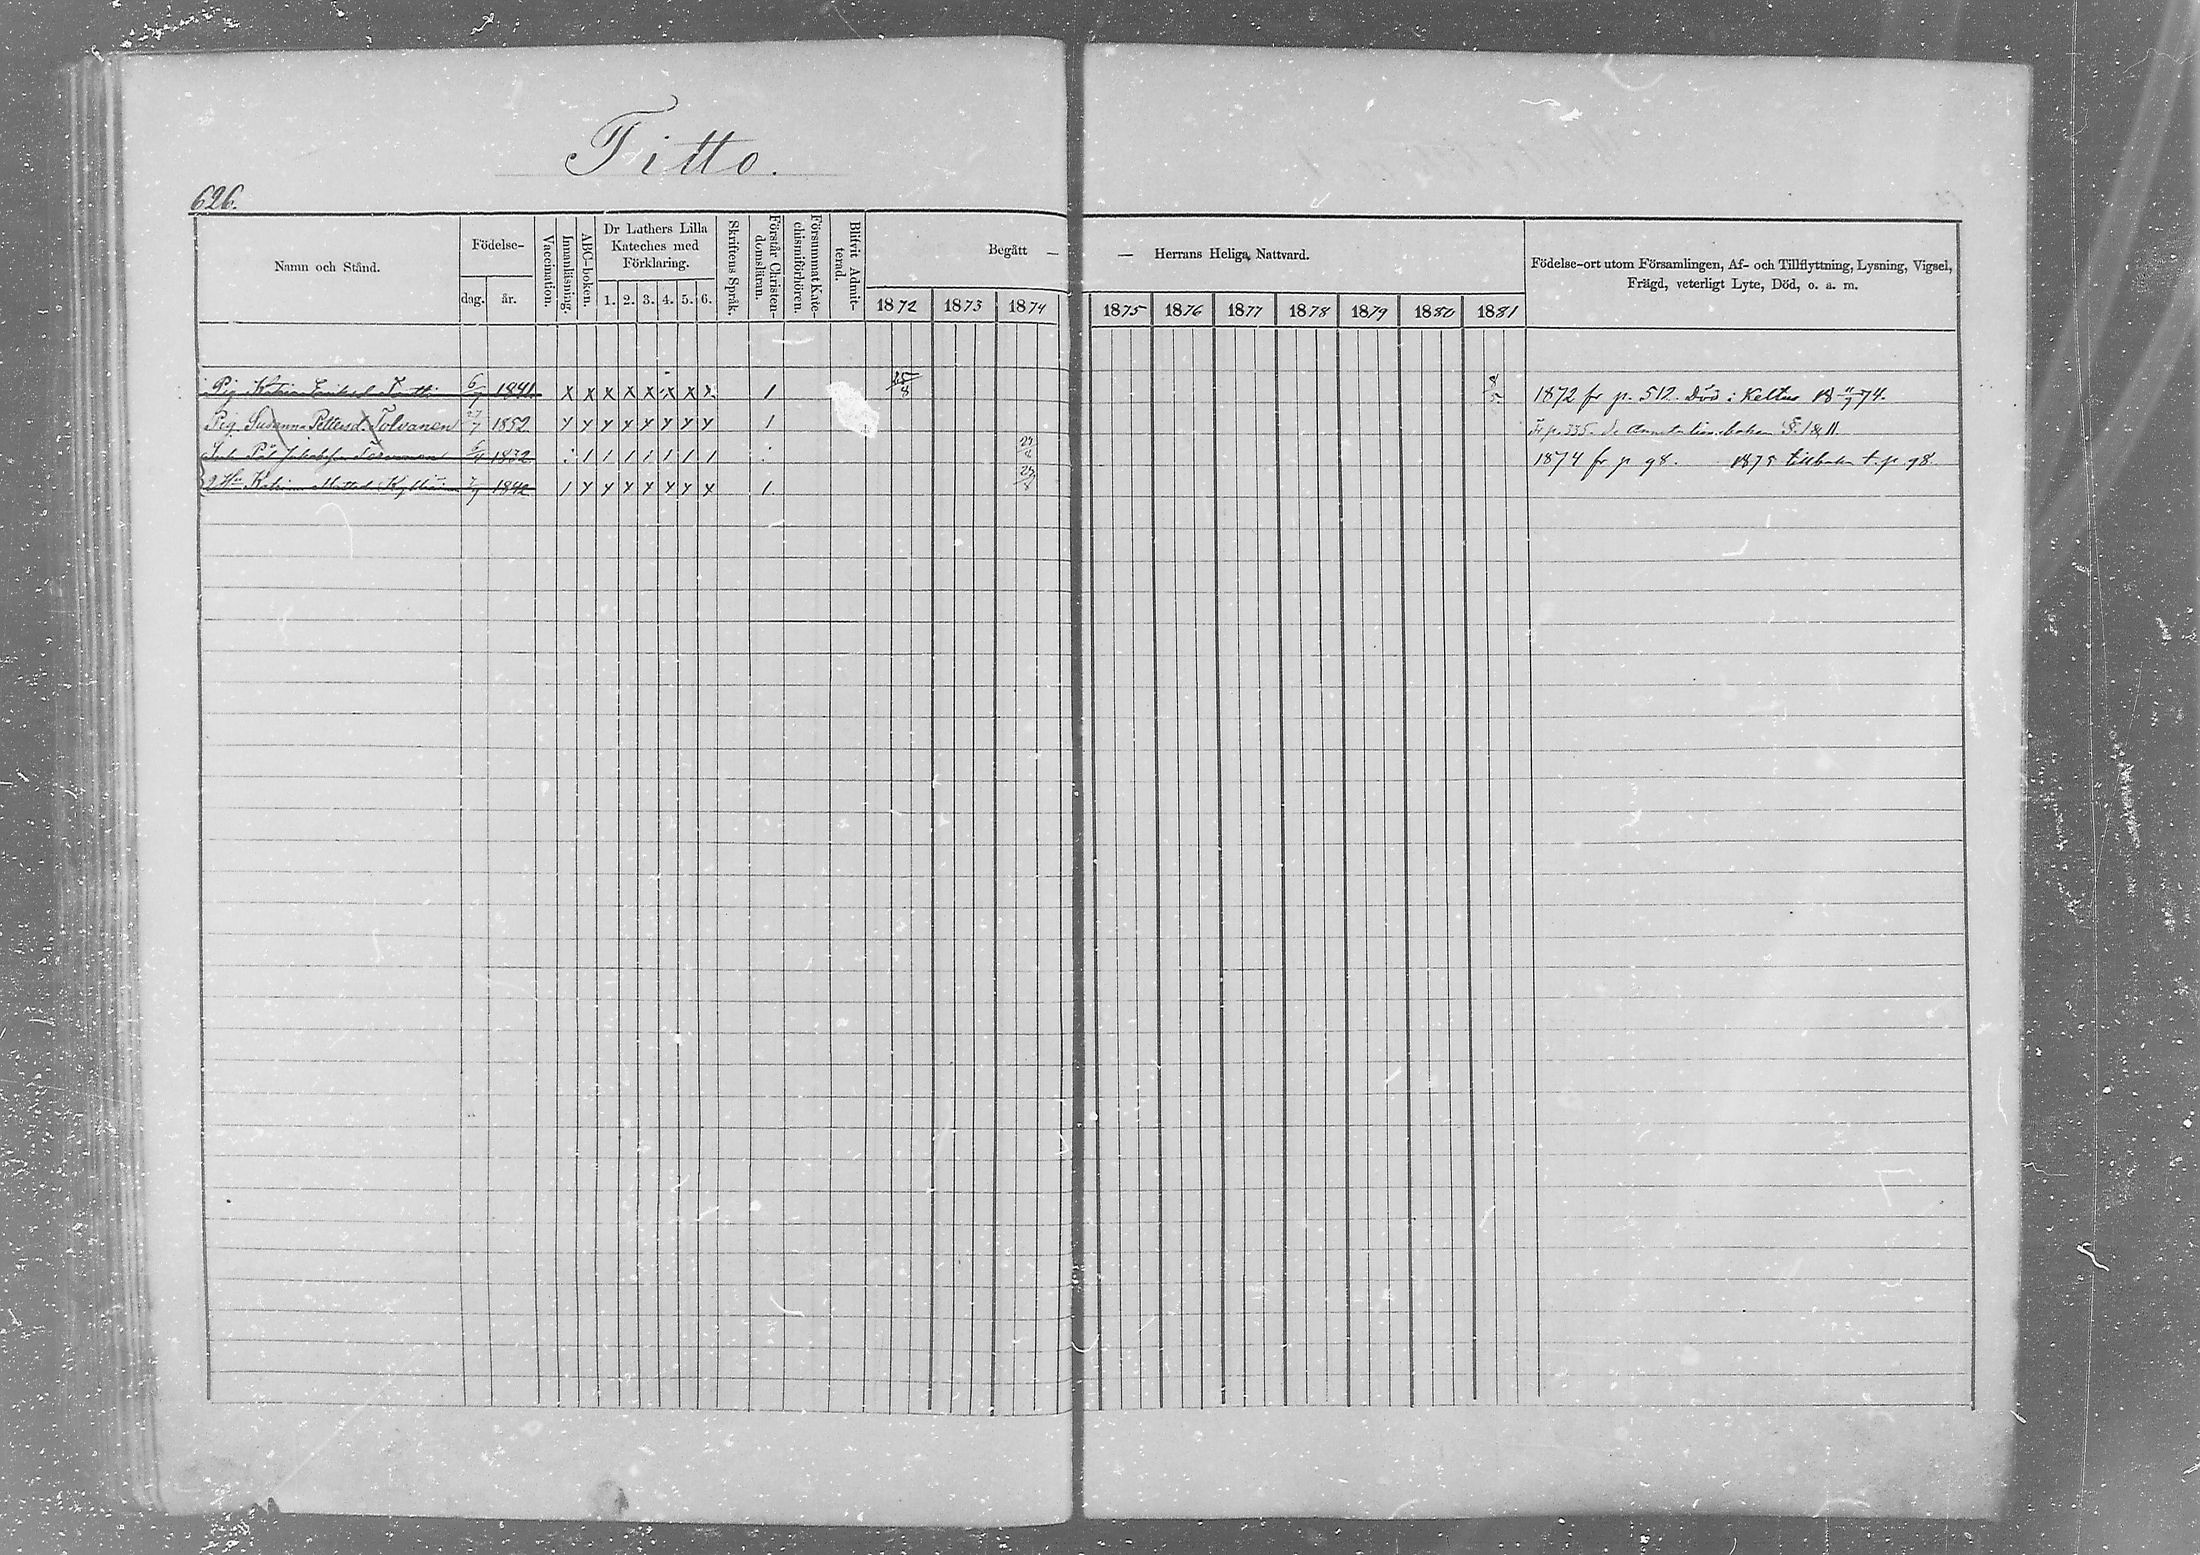 Titto.
626.
Namn och Stånd.
Födelse-
dag. år.
Vaccination.
Innanläsning.
ABC-boken.
Dr Luthers Lilla Kateches med Förklaring.
1. 2. 3. 4. 5. 6.
Skriftens Språk.
Förstår Christen-domsläran.
Försummat Kate-chismiförhören.
Blifvit Admit-terad.
Begått —
1872 1873 1874
— Herrans Heliga Nattvard.
1875 1876 1877 1878 1879 1880 1881
Födelse-ort utom Församlingen, Af- och Tillflyttning, Lysning, Vigsel,
Frägd, veterligt Lyte, Död, o. a. m.
Pig. Katrin 6/7 1841 x x x x x x x x 1 25/8 8/5 1872 fr p. 512. Död i Keltus 18 11/7 74.
Pig. Susanna Pettersd. Tolvanen 27/7 1852 1 Fr p. 335. Se Annotations boken
Pål 1832 1874 fr p 98. 1875 tillbaka t. p 98
Katrin Mattsd 1842 1